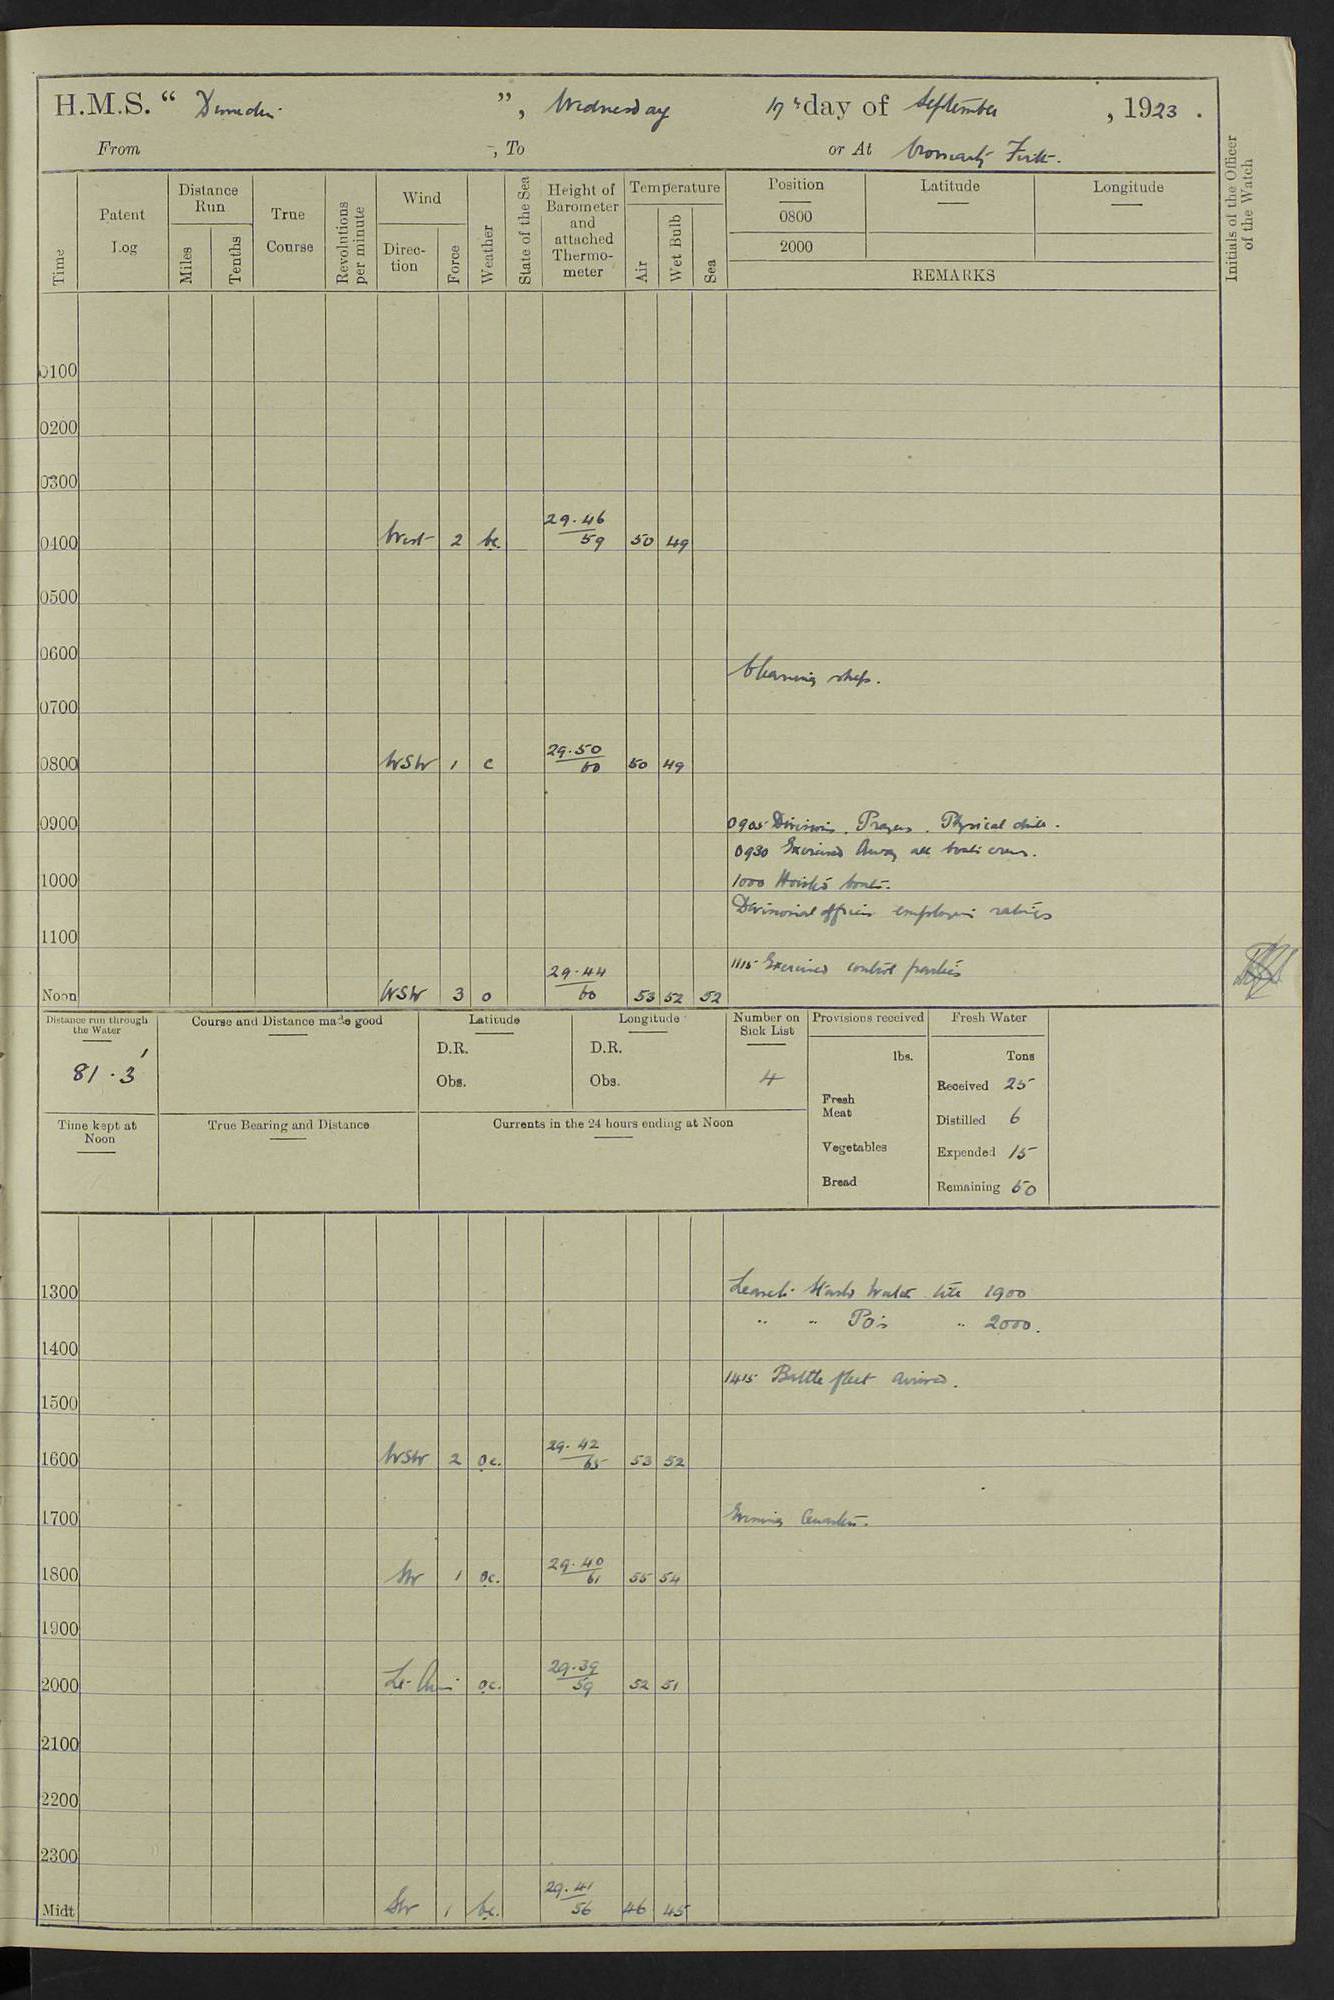 H.M.S. “ Dunedin ”, Wednesday 19th day of September , 1923 .
From -, To or At Cromarty Firth.
Time
Patent Log
Distance Run
Miles
Tenths
True Course
Revolutions per minute
Wind
Direction
Force
Weather
State of the Sea
Height of Barometer and attached Thermometer
Temperature
Air
Wet Bulb
Sea
Position
0800
2000
Latitude
Longitude
REMARKS
Initials of the Officer of the Watch
0100
0200
0300
0400 West 2 bc. 29.46 59 50 49
0500
0600
Cleaning ship.
0700
0800 WSW 1 c 29.50 60 50 49
0900
0905 Divisions. Prayers. Physical drill.
0930 Exercised Away all boats crews.
1000
1000 Hoisted boats.
Divisional officers employing ratings
1100
1115 Exercised control parties
Noon WSW 3 o 29.44 60 53 52 52
Distance run through the Water
81.3'
Course and Distance made good
Latitude
D.R.
Obs.
Longitude
D.R.
Obs.
Number on Sick List
4
Provisions received
lbs.
Fresh Meat
Vegetables
Bread
Fresh Water
Tons
Received 25
Distilled 6
Expended 15
Remaining 60
Time kept at Noon
True Bearing and Distance
Currents in the 24 hours ending at Noon
1300
Leave to Starbd Watch till 1900
" " POs " 2000.
1400
1415 Battle fleet arrived.
1500
1600 WSW 2 oc. 29.42 65 53 52
1700
Evening Quarters.
1800 SW 1 oc. 29.40 61 55 54
1900
2000 Lt Airs oc. 29.39 59 52 51
2100
2200
2300
Midt SW 1 bc. 29.41 56 46 45